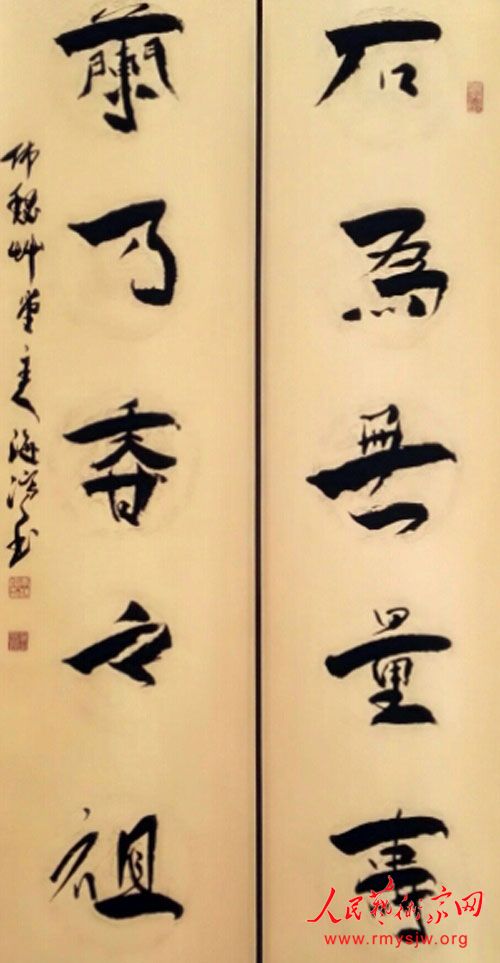 石為無量壽
蘭乃香之祖
師魏艸堂主人海濱書
人民藝術家网
www.rmysjw.org